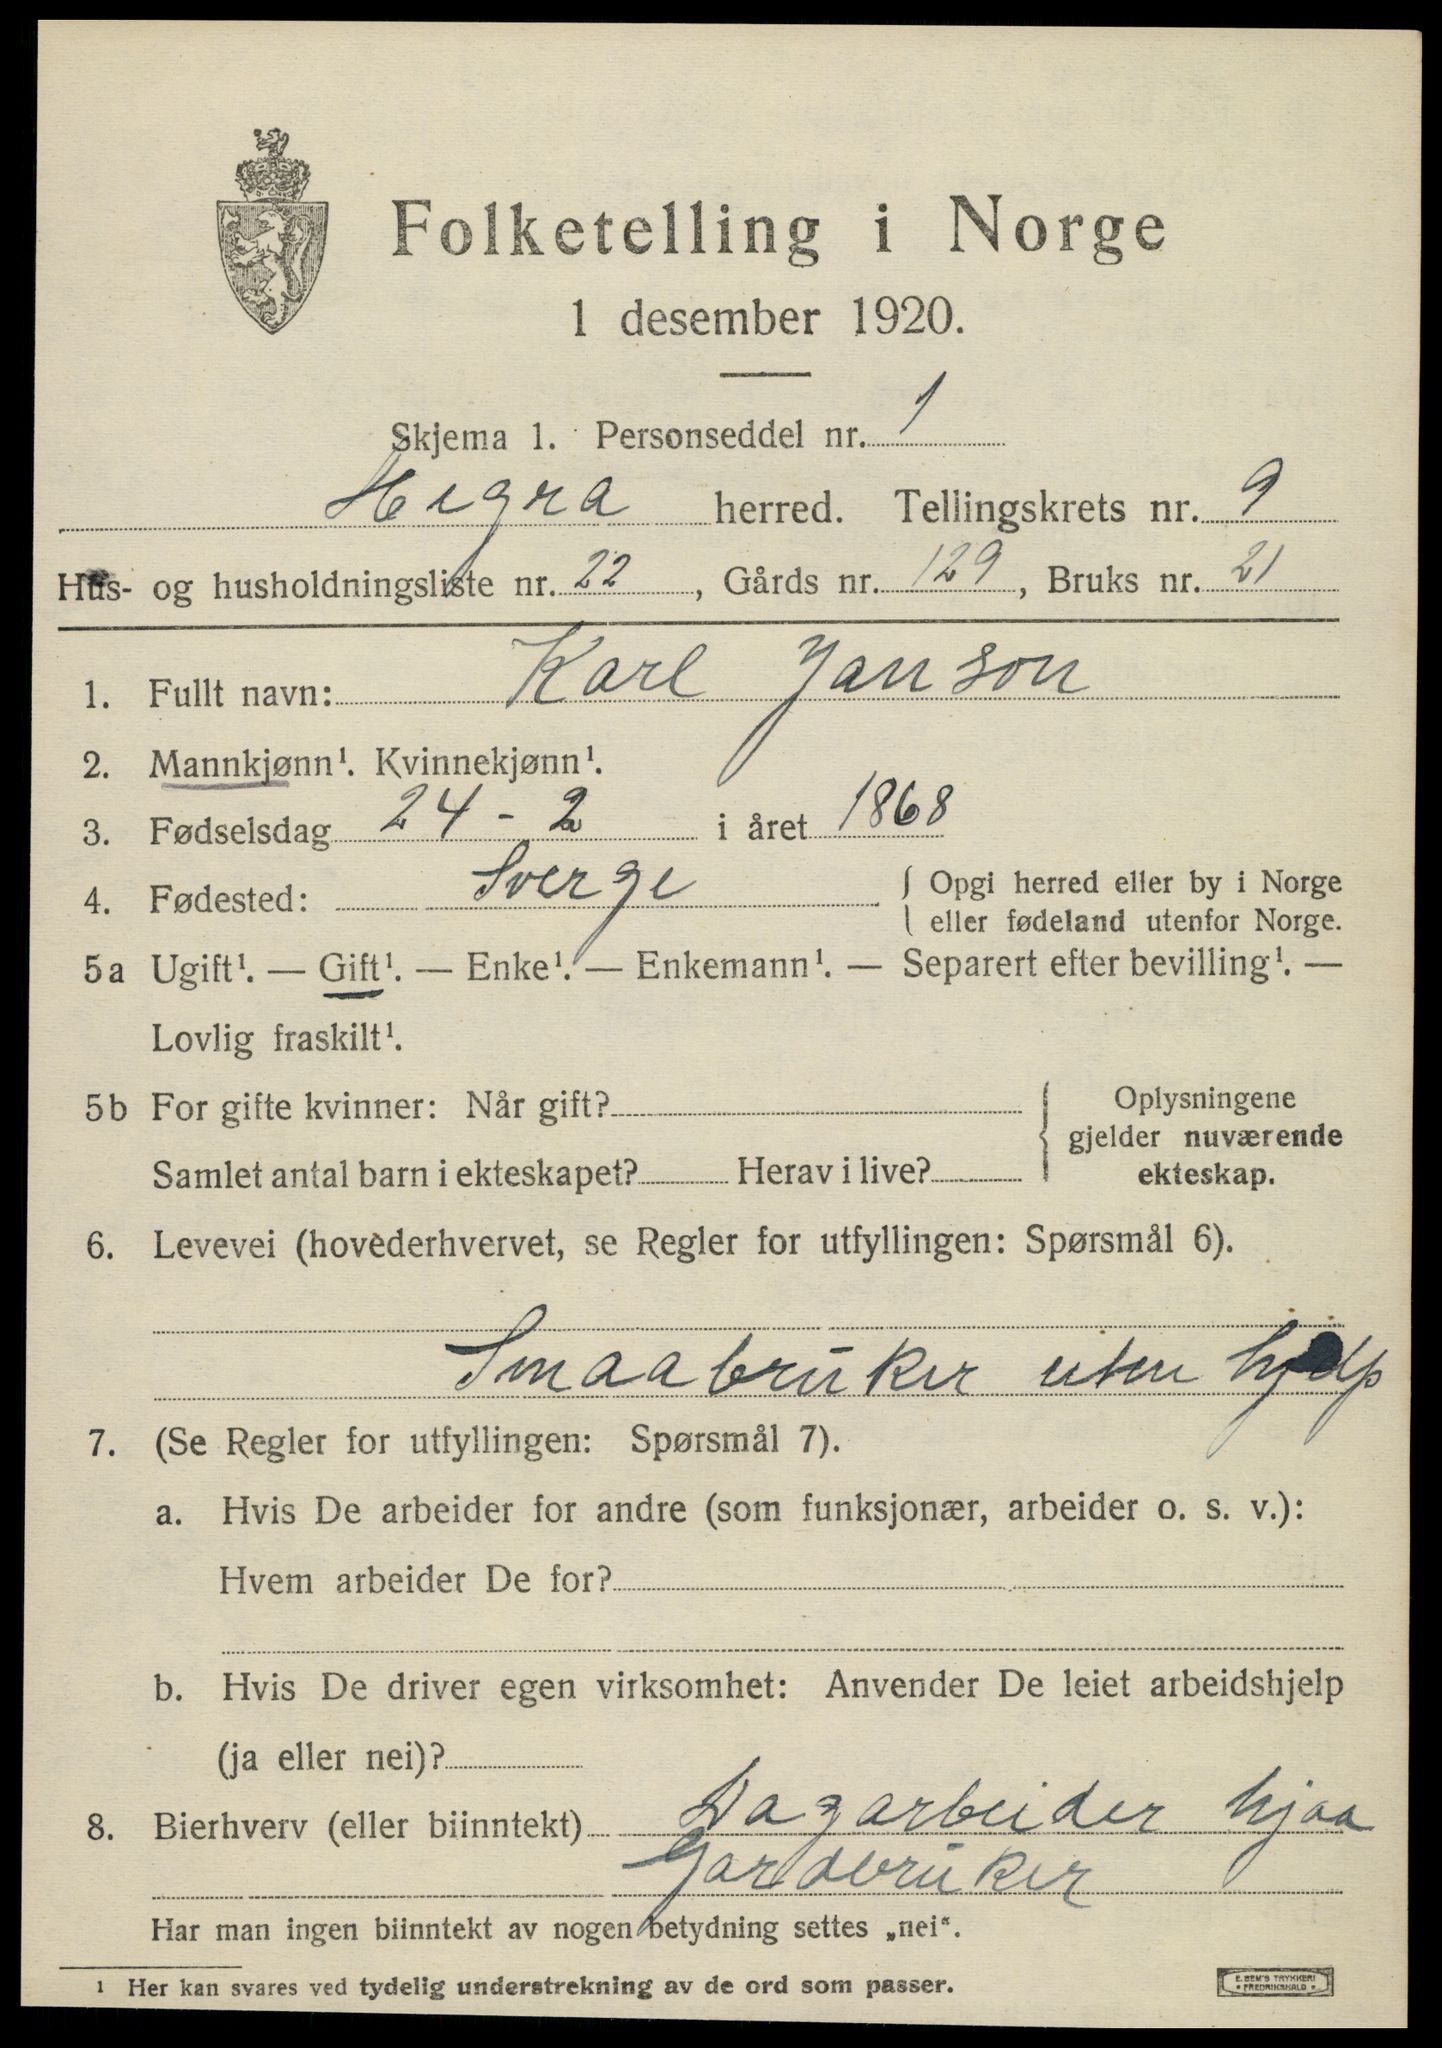 Folketelling i Norge
1 desember 1920.
Skjema 1. Personseddel nr. 1
Hegra herred. Tellingskrets nr. 9
Hus- og husholdningsliste nr. 22, Gårds nr. 129, Bruks nr. 21
1. Fullt navn: Karl Janson
2. Mannkjønn¹. Kvinnekjønn¹.
3. Fødselsdag 24 - 2 i året 1868
4. Fødested: Sverge { Opgi herred eller by i Norge
eller fødeland utenfor Norge.
5a Ugift¹. — Gift¹. — Enke¹. — Enkemann¹. — Separert efter bevilling¹. —
Lovlig fraskilt¹.
5b For gifte kvinner: Når gift? { Oplysningene
gjelder nuværende
Samlet antal barn i ekteskapet? Herav i live? ekteskap.
6. Levevei (hovederhvervet, se Regler for utfyllingen: Spørsmål 6).
Smaabruker uten hjelp
7. (Se Regler for utfyllingen: Spørsmål 7).
a. Hvis De arbeider for andre (som funksjonær, arbeider o. s. v.):
Hvem arbeider De for?
b. Hvis De driver egen virksomhet: Anvender De leiet arbeidshjelp
(ja eller nei)?
8. Bierhverv (eller biinntekt) Dagarbeider hjaa
Gardbruker
Har man ingen biinntekt av nogen betydning settes „nei“.
¹ Her kan svares ved tydelig understrekning av de ord som passer.
E. SEM'S TRYKKERI
FREDRIKSHALD